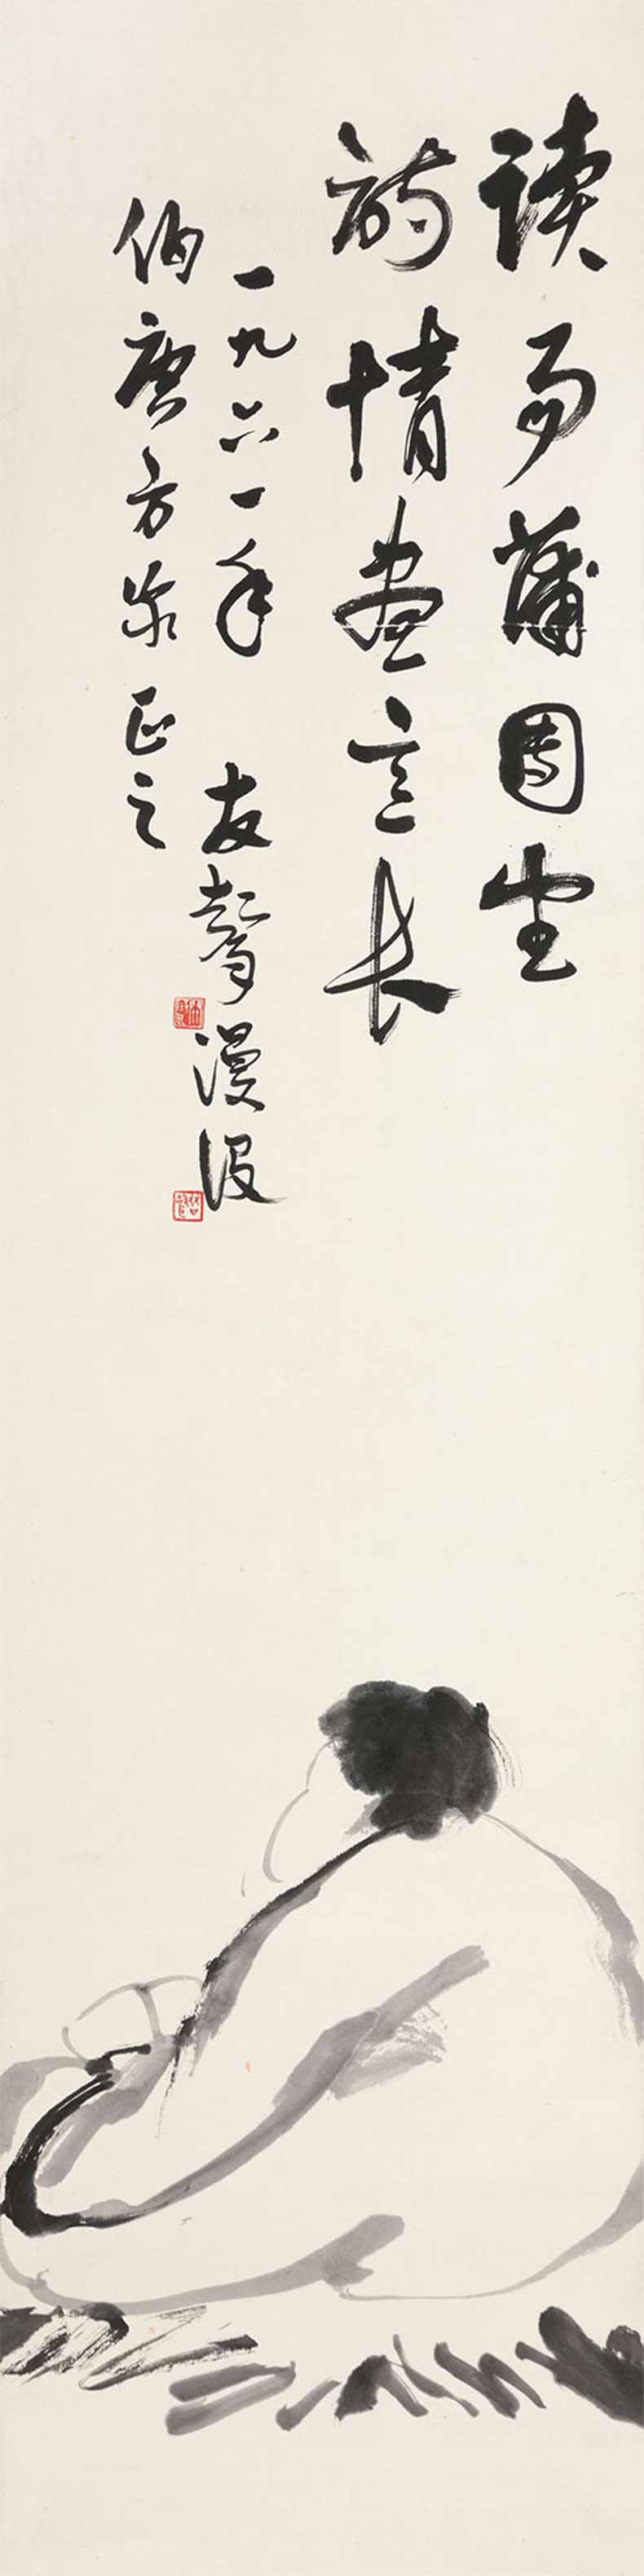 读易蒲团坐
诗情画意长
一九六一年 友声漫设
伯庚方家正之